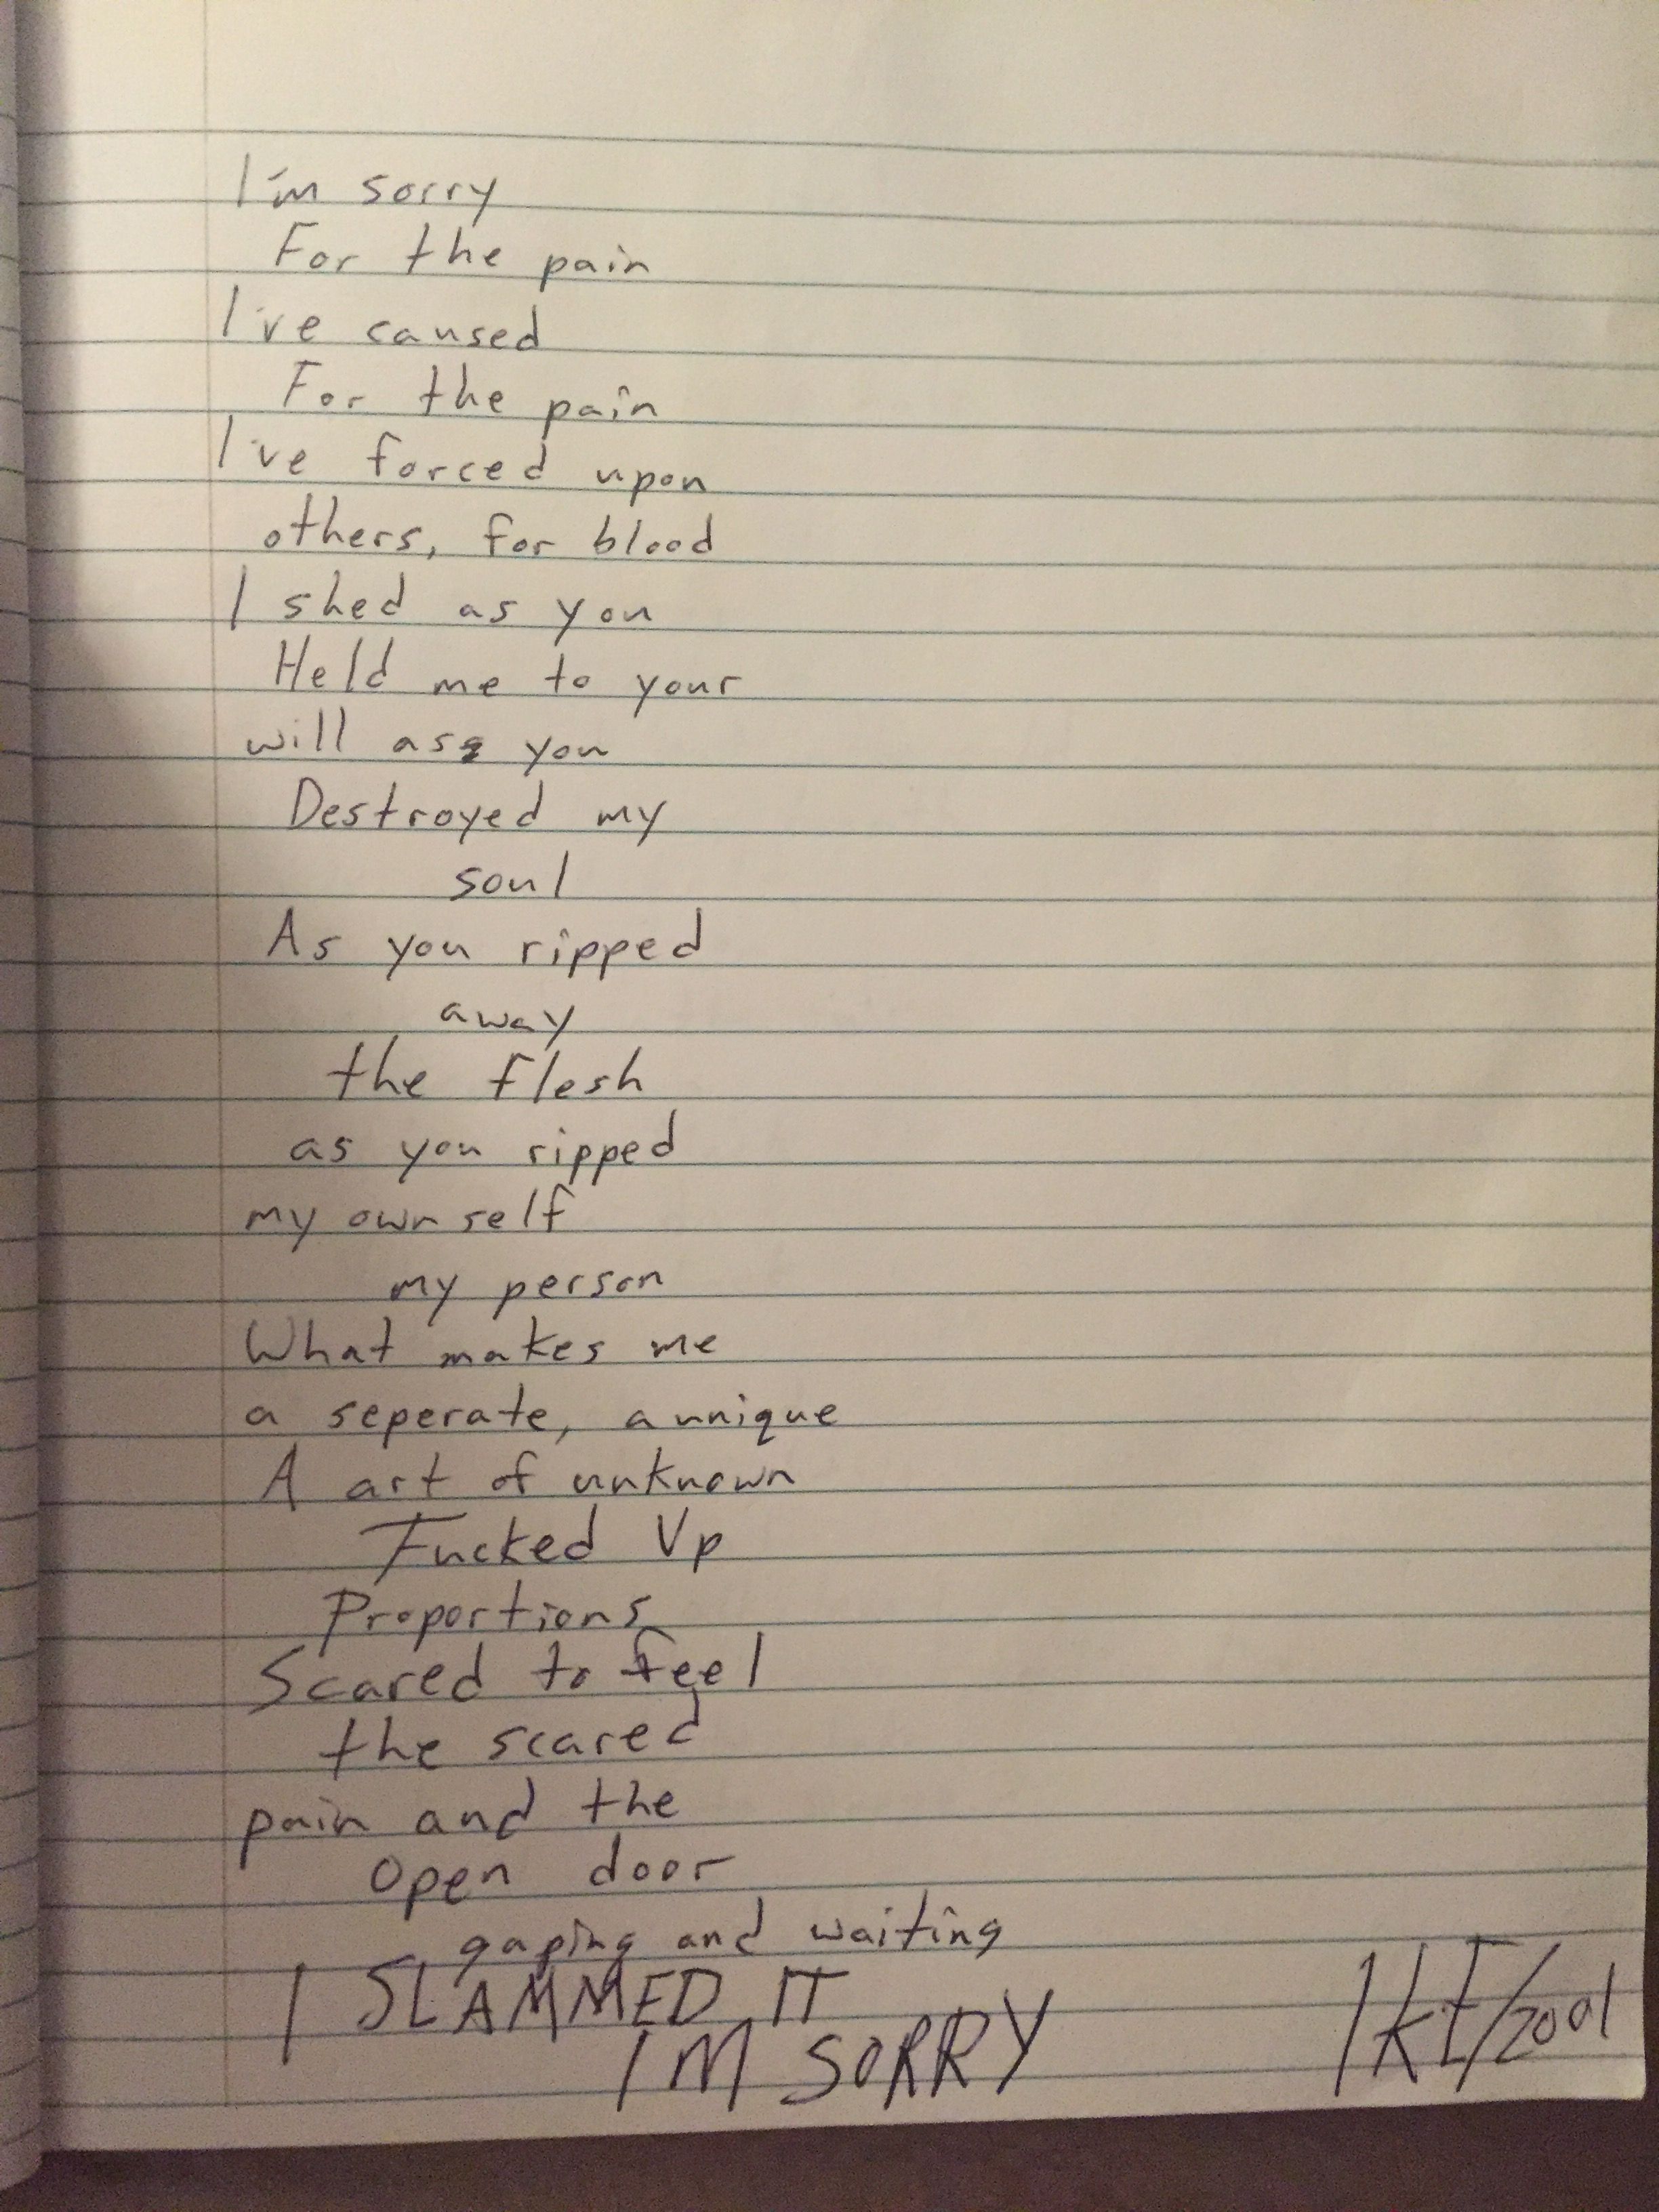 I'm sorry
For the pain
I've caused
For the pain
I've forced upon
others, for blood
I shed as you
Held me to your
will as you
Destroyed my
soul
As you ripped
away
the flesh
as you ripped
my own self
my person
What makes me
a seperate, a unique
A art of unknown
Fucked Up
Proportions
Scared to feel
the scared
pain and the
open door
gaping and waiting
I SLAMMED IT
I'M SORRY
/2001